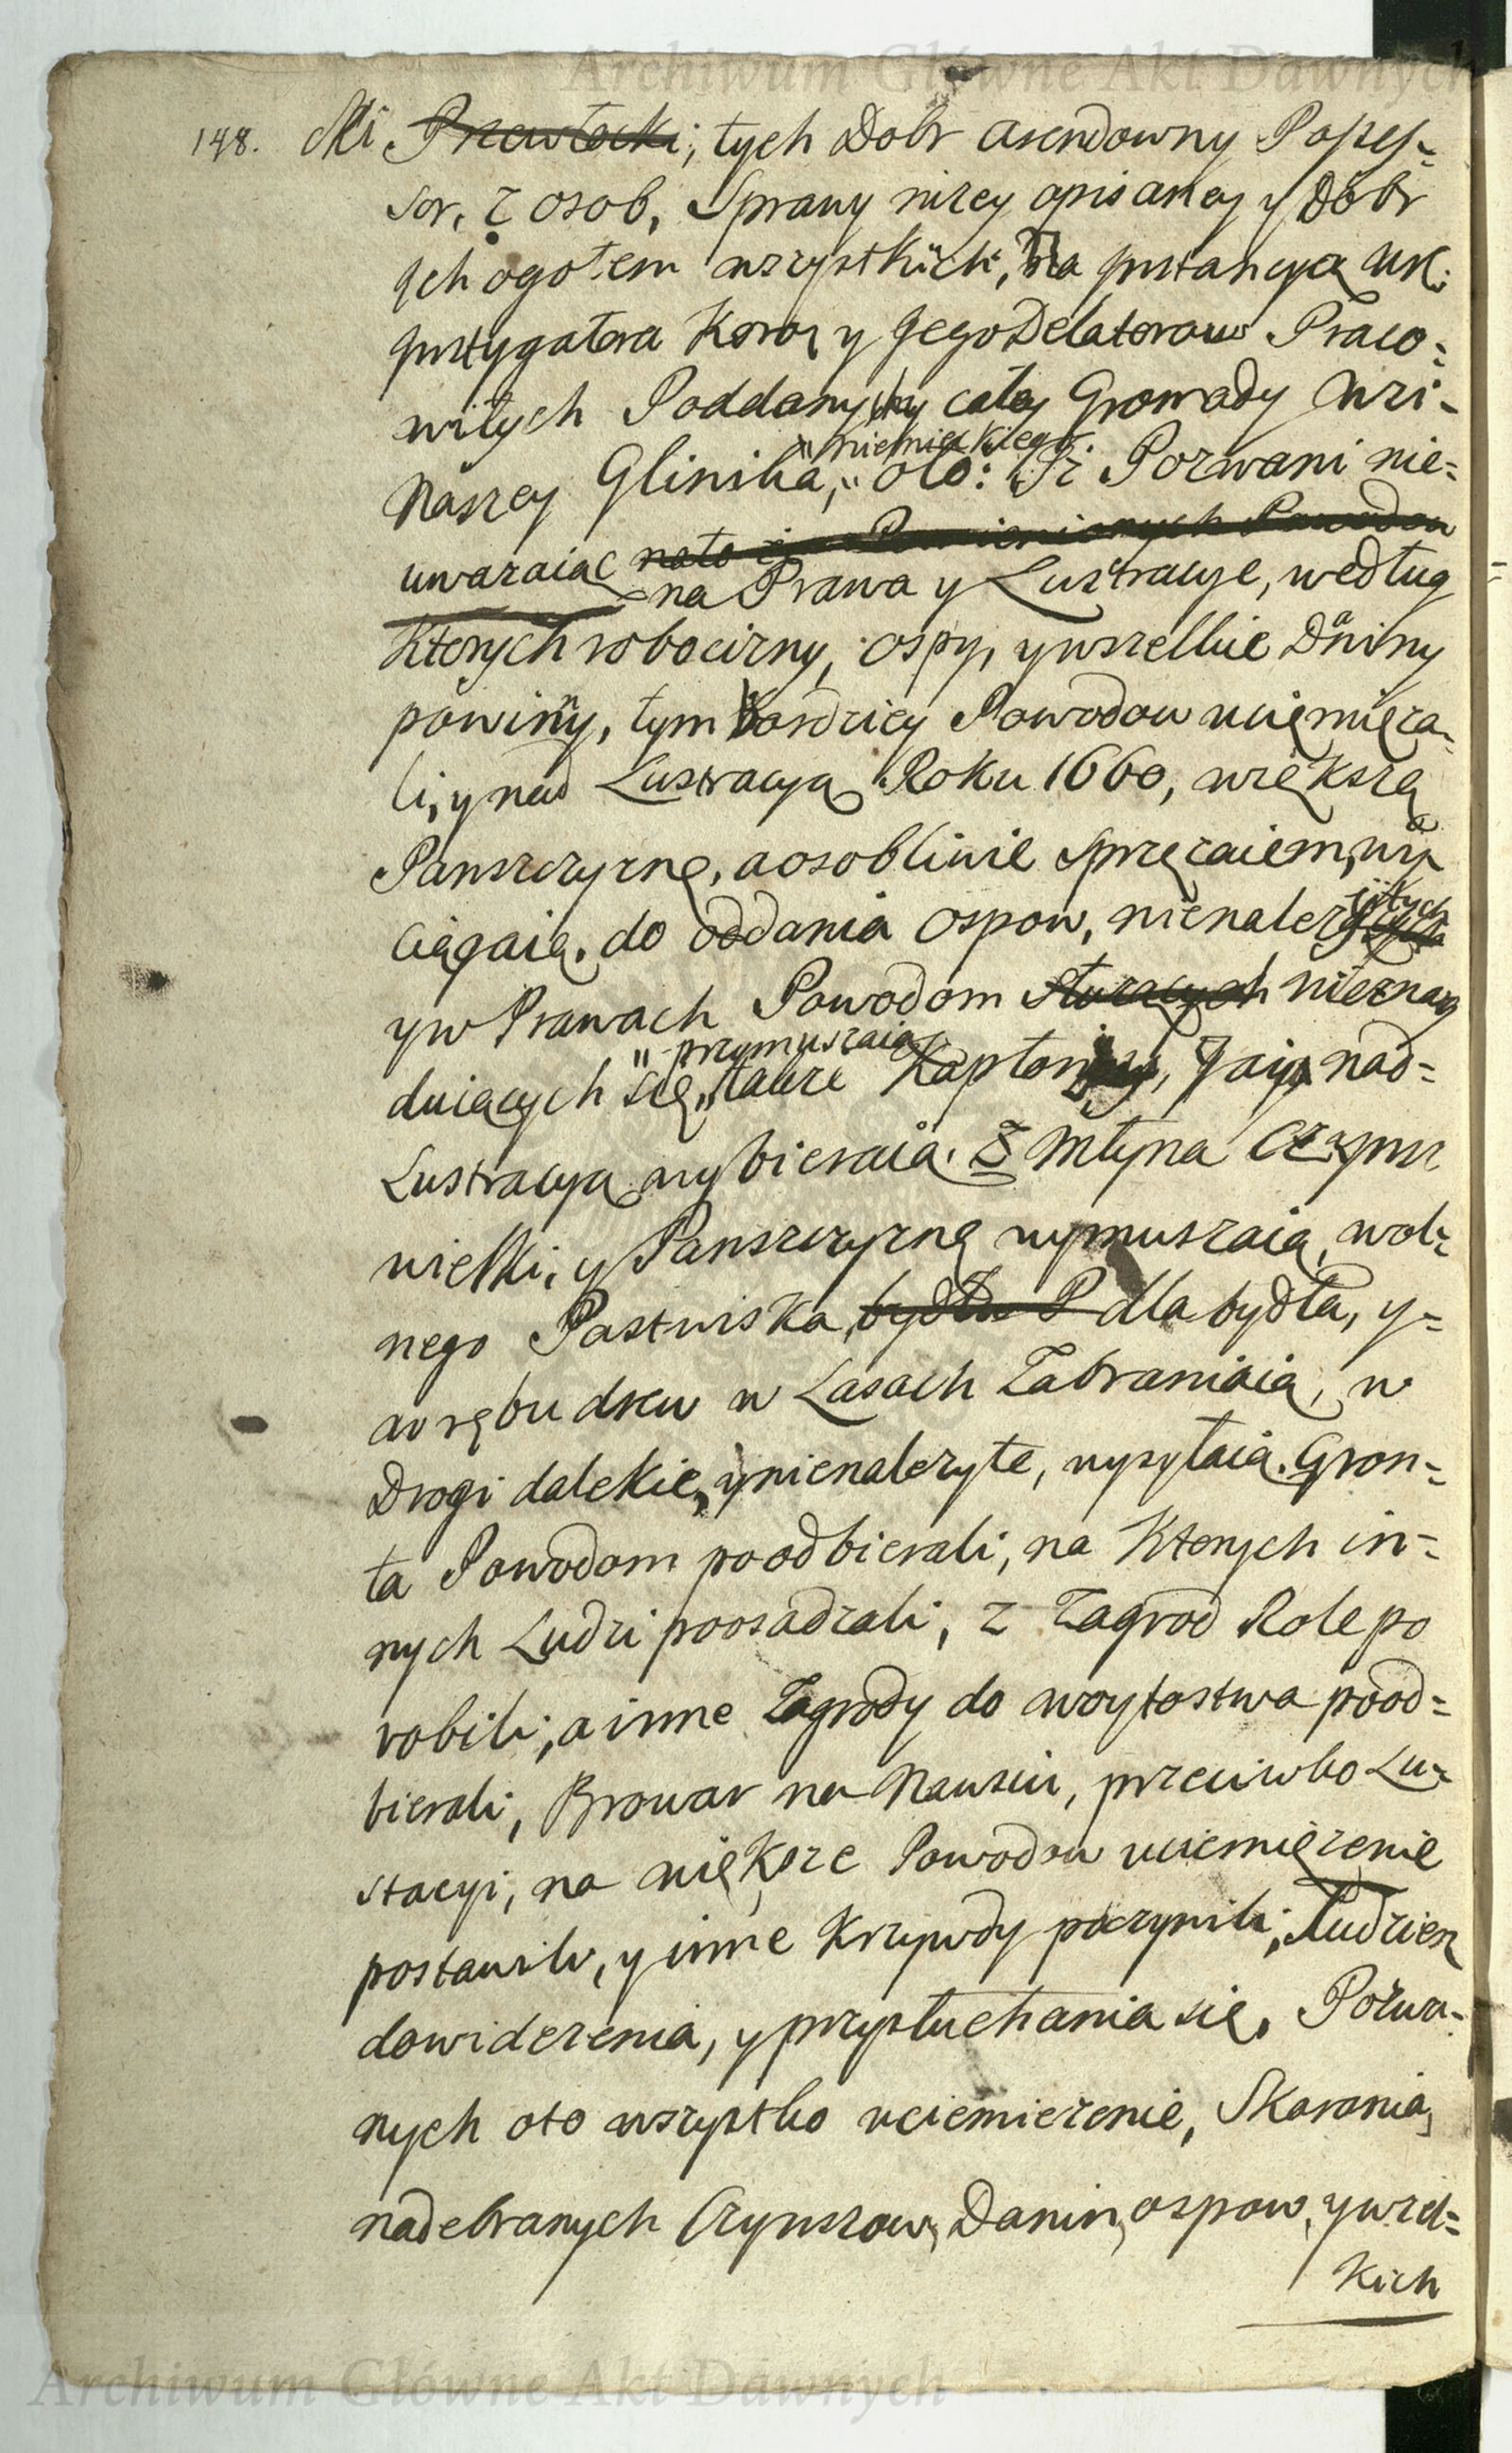 Archiwum Główne Akt Dawnych
148. Mi Przewłocki, tych Dobr arendowny Posses=
sor, z osob, Sprawy nizey opisaney y Dobr
Jch ogołem wszystkich, Na Jnstancyą Ur:
Jnstygatora Koro: y Jego Delatorow Praco=
witych Poddanych y całey Gromady Wsi-
Naszey Glinika, „ oto: Jż Pozwani nie=
„ niemieckiego
uwazaiąc na to że Pomienionych Powodow
na Prawa y Lustracye, według
Ktorych robocizny, ospy, y wszelkie Daniny
powinny, tym bardziey Powodow uciemięza-
li, y nad Lustracyą Roku 1660, większą
Panszczyznę, a osobliwie Sprzęzaiem, wy
ciągaią, do oddania ospow, nienalezytych
y w Prawach Powodom słuzących nieznay
duiących się, „ takze Kapłony, Jaja nad=
„ przymuszaią
Lustracyą wybieraią. Z Młyna Czynsz
wielki, y Panszczyznę wymuszaią, wol=
nego Pastwiska, bydła P dla bydła, y=
wrębu drew w Lasach Zabraniaią, w
Drogi dalekie, y nienalezyte, wysyłaią. Gron=
ta Powodom poodbierali, na Ktorych in=
nych Ludzi poosadzali, z Zagrod Role po
robili, a inne Zagrody do woytostwa pood=
bierali, Browar na Nawsiu, przeciwko Lu=
stacyi, na większe Powodow uciemięzenie
postawili, y inne Krzywdy poczynili; Ludziez
do widzenia, y przysłuchania się, Pozwa-
nych oto wszystko uciemiezenie, Skarania,
nadebranych Czynszow, Danin, ospow, y wszel=
kich
Archiwum Główne Akt Dawnych